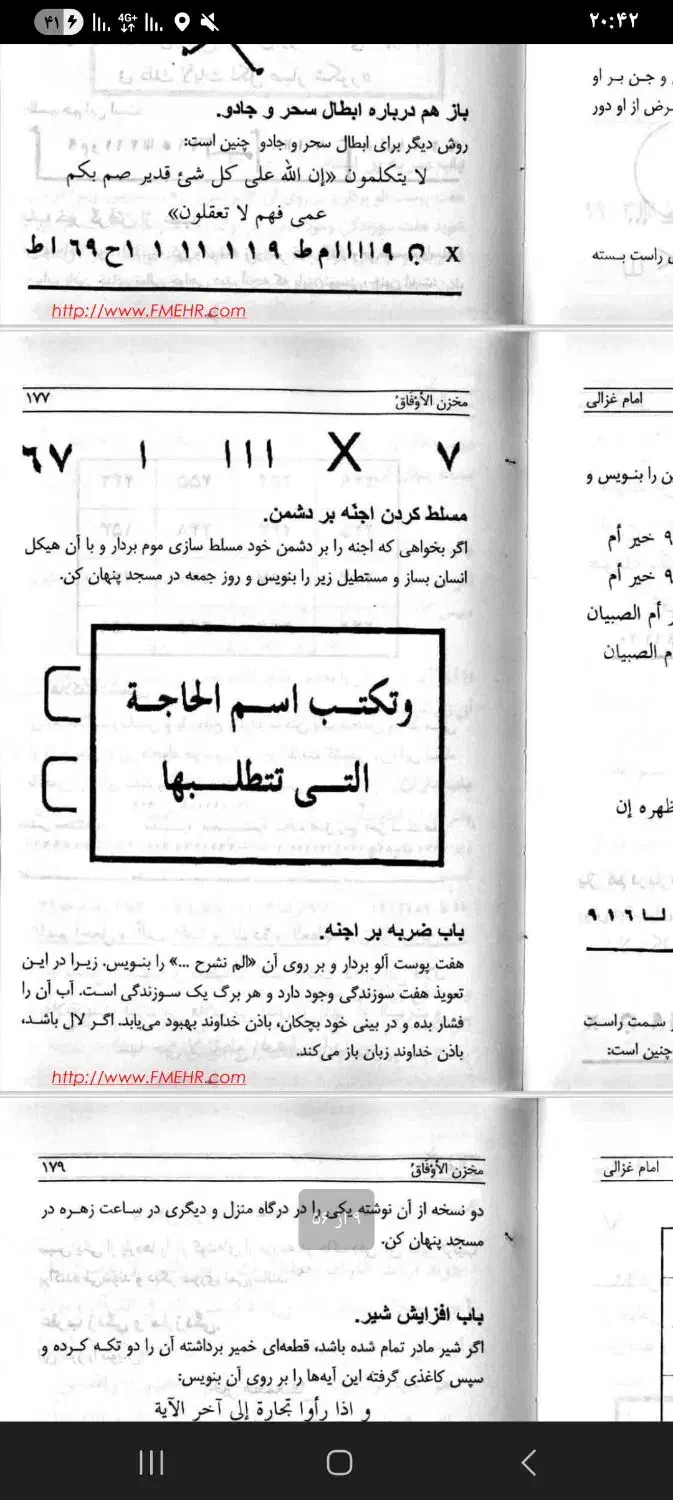 ۴۱
4G+
۲۰:۴۲
باز هم درباره ابطال سحر و جادو.
روش دیگر برای ابطال سحر و جادو چنین است:
لا یتکلمون «إن الله علی کل شئ قدیر صم بکم
عمی فهم لا تعقلون»
http://www.FMEHR.com
و جن بر او
رض از او دور
ی راست بسته
مخزن الأوْفَاقْ
۱۷۷
۷ X ااا ا ٦٧
مسلط کردن اجنّه بر دشمن.
اگر بخواهی که اجنه را بر دشمن خود مسلط سازی موم بردار و با آن هیکل
انسان بساز و مستطیل زیر را بنویس و روز جمعه در مسجد پنهان کن.
وتکتب اسم الحاجة
التی تتطلبها
باب ضربه بر اجنه.
هفت پوست آلو بردار و بر روی آن «الم نشرح ...» را بنویس. زیرا در این
تعویذ هفت سوزندگی وجود دارد و هر برگ یک سوزندگی است. آب آن را
فشار بده و در بینی خود بچکان، باذن خداوند بهبود می‌یابد. اگر لال باشد،
باذن خداوند زبان باز می‌کند.
http://www.FMEHR.com
امام غزالی
ن را بنویس و
۹ خیر أم
۹ خیر أم
ر أم الصبیان
م الصبیان
ظهره إن
لـا ۹۱۶
ز سمت راست
چنین است:
مخزن الأوْفَاقْ
۱۷۹
دو نسخه از آن نوشته یکی را در درگاه منزل و دیگری در ساعت زهره در
مسجد پنهان کن.
۹ از ۵۶
باب افزایش شیر.
اگر شیر مادر تمام شده باشد، قطعه‌ای خمیر برداشته آن را دو تکه کرده و
سپس کاغذی گرفته این آیه‌ها را بر روی آن بنویس:
و اذا رأوا تجارة إلی آخر الآیة
امام غزالی